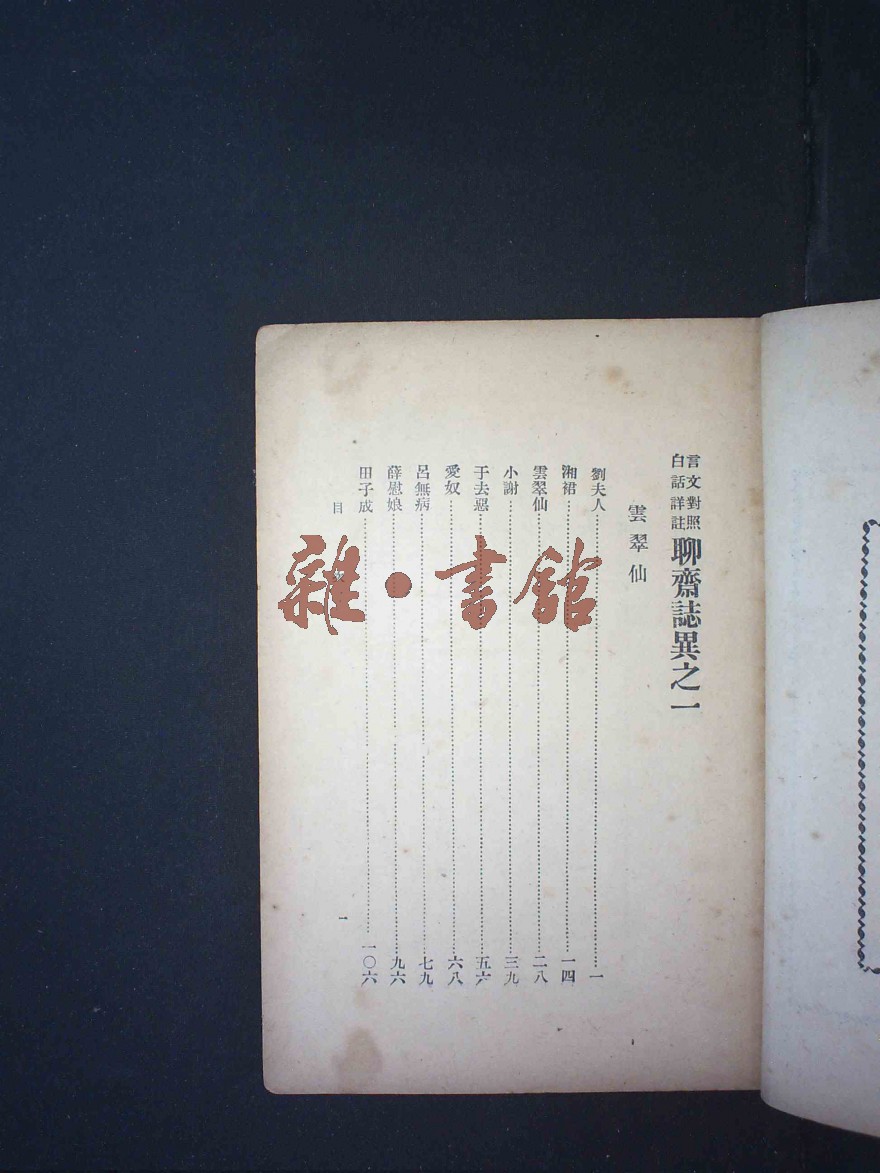 言文對照
白話詳註
聊齋誌異之一
雲翠仙
劉夫人 一
湘裙 一四
雲翠仙 二八
小謝 三九
于去惡 五六
愛奴 六八
呂無病 七九
薛慰娘 九六
田子成 一〇六
目
一
雜・書館